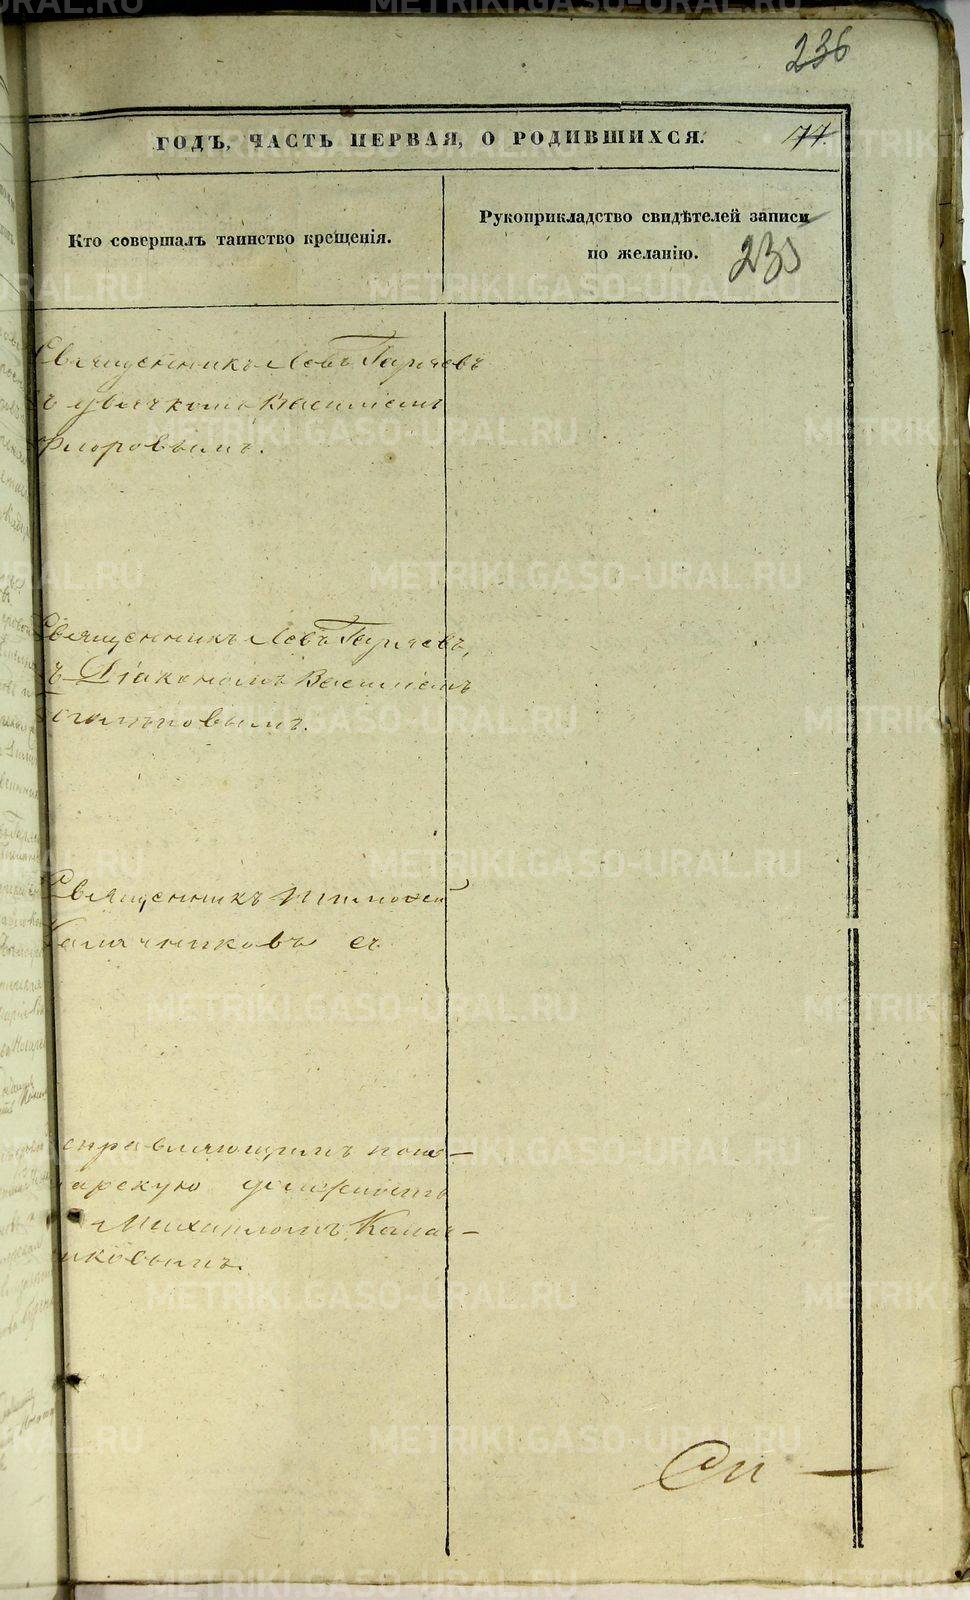 236
ГОДЪ, ЧАСТЬ ПЕРВАЯ, О РОДИВШИХСЯ. 74.
Кто совершалъ таинство крещенія.
Рукоприкладство свидѣтелей записи
по желанію.
235
Священникъ Левъ Гаряевъ
съ дьячкомъ Василіемъ
Флоровымъ.
Священникъ Левъ Гаряевъ,
съ Діакономъ Василіемъ
Священникъ Тимофей
Калачниковъ съ
исправляющимъ
должность
Михаиломъ Калач-
никовымъ.
METRIKI.GASO-URAL.RU